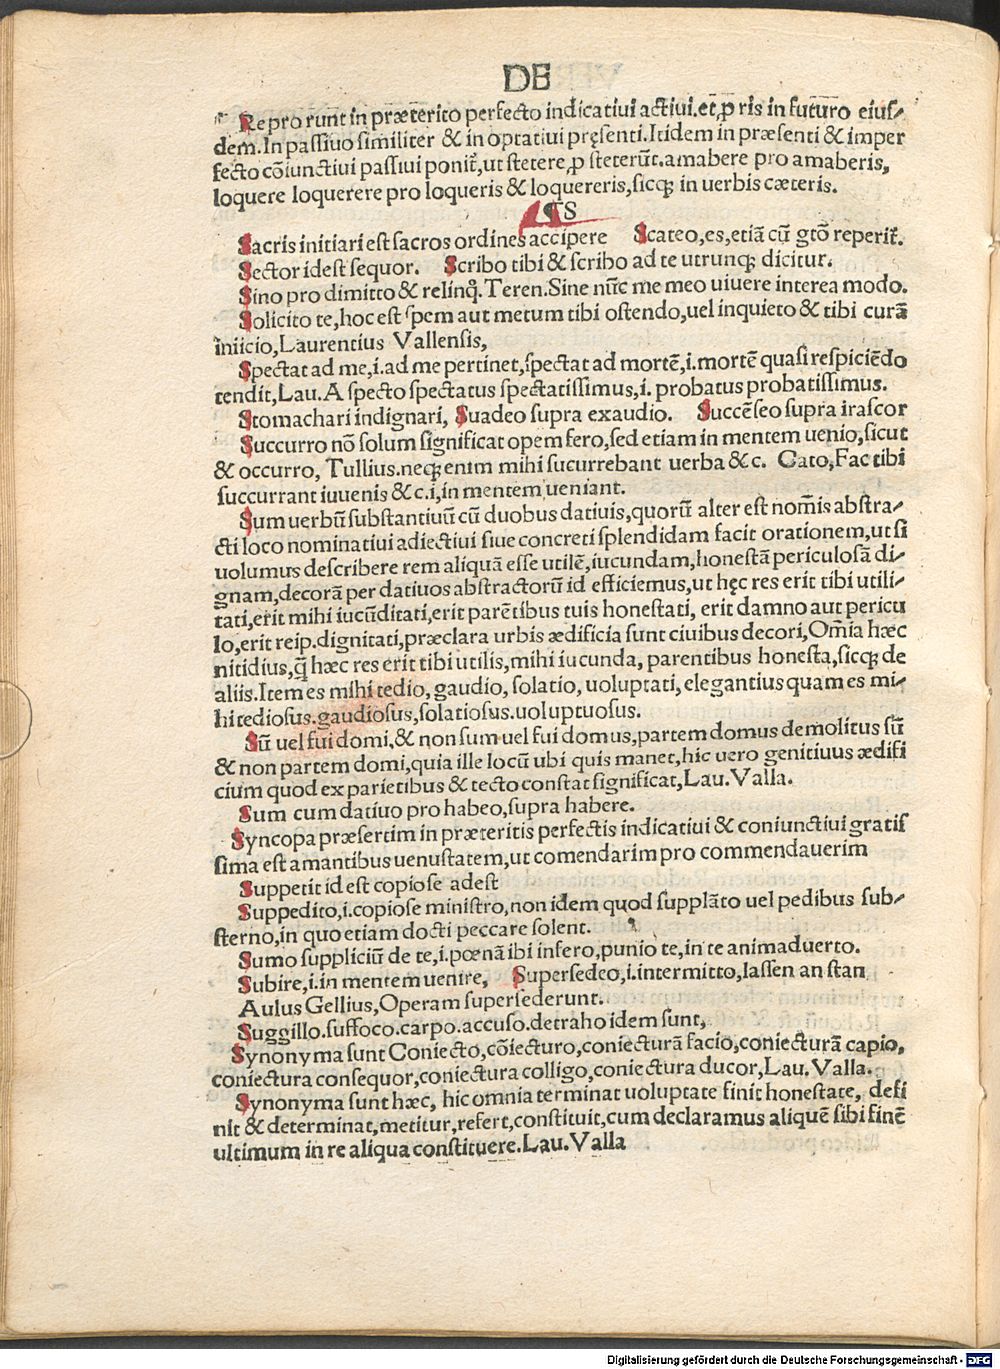 DE
Re pro runt in præterito perfecto indicatiui actiui.et ꝓ ris in futuro eius/
dem.In passiuo similiter & in optatiui pręsenti.Itidem in præsenti & imper
fecto cōiunctiui passiui ponit̄,ut stetere,ꝓ steterūt.amabere pro amaberis,
loquere loquerere pro loqueris & loquereris,sicqꝫ in uerbis cæteris.
¶S
Sacris initiari est sacros ordines accipere Scateo,es,etiā cū gtō reperit̄.
Sector idest sequor. Scribo tibi & scribo ad te utrunqꝫ dicitur.
Sino pro dimitto & relinq̄. Teren.Sine nūc me meo uiuere interea modo.
Solicito te,hoc est spem aut metum tibi ostendo,uel inquieto & tibi curā
iniicio,Laurentius Vallensis,
Spectat ad me,i.ad me pertinet,spectat ad mortē,i.mortē quasi respiciēdo
tendit,Lau.A specto spectatus spectatissimus,i. probatus probatissimus.
Stomachari indignari, Suadeo supra exaudio. Succēseo supra irascor
Succurro nō solum significat opem fero,sed etiam in mentem uenio,sicut
& occurro, Tullius.neqꝫ enim mihi sucurrebant uerba &c. Cato,Fac tibi
succurrant iuuenis & c.i,in mentem ueniant.
Sum uerbū substantiuū cū duobus datiuis,quorū alter est nom̄is abstra/
cti loco nominatiui adiectiui siue concreti splendidam facit orationem,ut si
uolumus describere rem aliquā esse utilē,iucundam,honestā periculosā di/
gnam,decorā per datiuos abstractorū id efficiemus,ut hęc res erit tibi utili/
tati,erit mihi iucūditati,erit parētibus tuis honestati, erit damno aut pericu
lo,erit reip.dignitati,præclara urbis ædificia sunt ciuibus decori,Om̄ia hæc
nitidius,q̄ hæc res erit tibi utilis,mihi iucunda, parentibus honesta,sicqꝫ de
aliis.Item es mihi tedio, gaudio, solatio, uoluptati, elegantius quam es mi/
hi tediosus.gaudiosus,solatiosus.uoluptuosus.
Sū uel fui domi,& non sum uel fui domus,partem domus demolitus sū
& non partem domi,quia ille locū ubi quis manet,hic uero genitiuus ædifi
cium quod ex parietibus & tecto constat significat,Lau.Valla.
Sum cum datiuo pro habeo,supra habere.
Syncopa præsertim in præteritis perfectis indicatiui & coniunctiui gratis
sima est amantibus uenustatem,ut comendarim pro commendauerim
Suppetit id est copiose adest
Suppedito,i.copiose ministro,non idem quod supplāto uel pedibus sub/
sterno,in quo etiam docti peccare solent.
Sumo suppliciū de te,i.pœnā ibi infero,punio te,in te animaduerto.
Subire,i.in mentem uenire, Supersedeo,i.intermitto,lassen an stan
Aulus Gellius,Operam supersederunt.
Suggillo.suffoco.carpo.accuso.detraho idem sunt,
Synonyma sunt Coniecto,cōiecturo,coniecturā facio,coniecturā capio,
coniectura consequor,coniectura colligo,coniectura ducor,Lau.Valla.
Synonyma sunt hæc, hic omnia terminat uoluptate finit honestate, defi
nit & determinat,metitur,refert,constituit,cum declaramus aliquē sibi finē
ultimum in re aliqua constituere.Lau.Valla
Digitalisierung gefördert durch die Deutsche Forschungsgemeinschaft - DFG